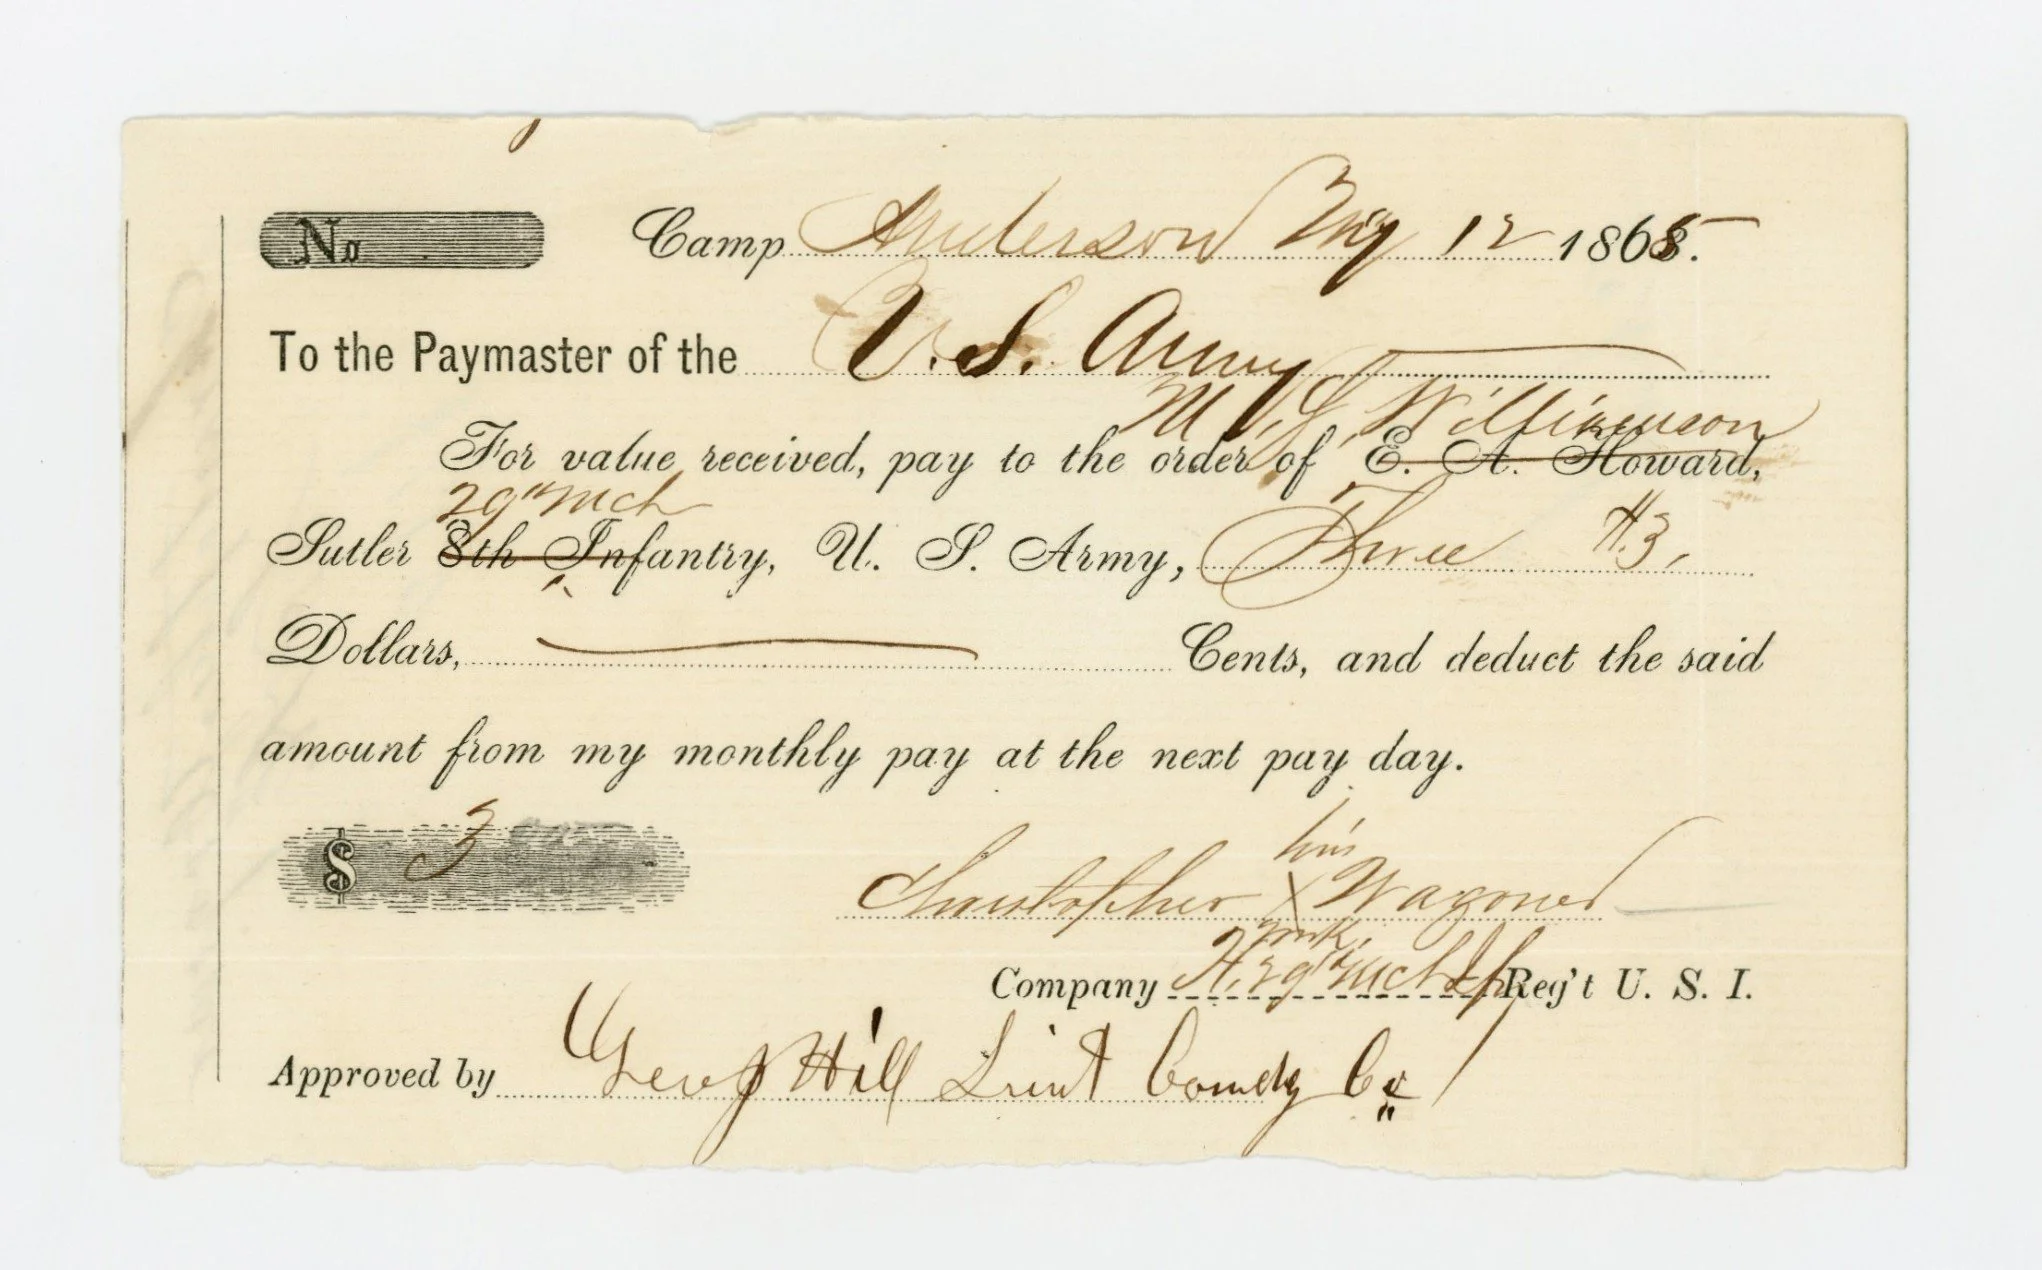 No Camp Anderson May 12 1865.
To the Paymaster of the U. S. Army
M. V. S. Wilkinson
For value received, pay to the order of E. A. Howard,
29" Mch
Sutler 8th Infantry, U. S. Army, Three $3,
Dollars, Cents, and deduct the said
amount from my monthly pay at the next pay day.
$ 3
his
Christopher X Wagoner
mrk.
Company H. 29" Mch Reg't U. S. I.
Approved by Hill Lieut Comdg Co